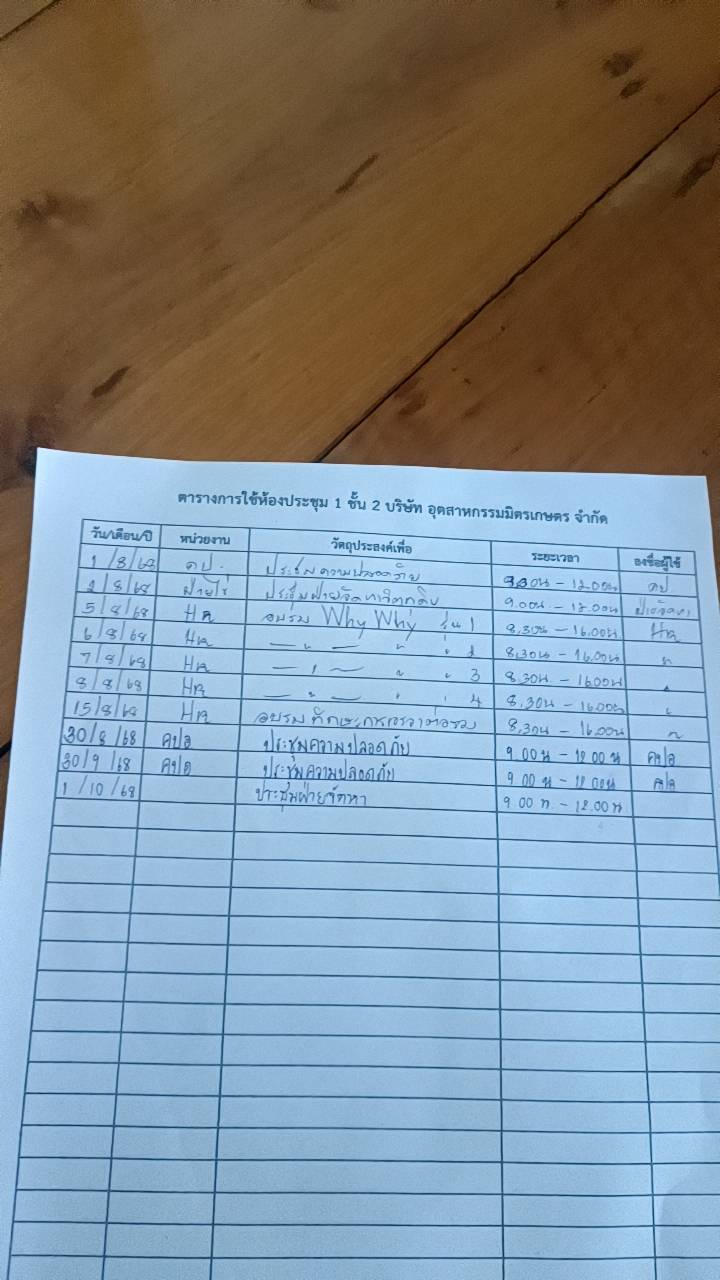 ตารางการใช้ห้องประชุม 1 ชั้น 2 บริษัท อุตสาหกรรมมิตรเกษตร จำกัด
วัน/เดือน/ปี หน่วยงาน วัตถุประสงค์เพื่อ ระยะเวลา ลงชื่อผู้ใช้
1/8/68 คป. ประชุมความปลอดภัย 9.00น - 12.00น คป
2/8/68 ฝ่ายไร่ ประชุมฝ่ายจัดหาวัตถุดิบ 9.00น - 12.00น
5/8/68 HR อบรม Why Why รุ่น 1 8.30น - 16.00น HR
6/8/68 HR — " — " " 2 8.30น - 16.00น "
7/8/68 HR — " — " " 3 8.30น - 16.00น "
8/8/68 HR — " — " " 4 8.30น - 16.00น "
15/8/68 HR อบรมทักษะการเจรจาต่อรอง 8.30น - 16.00น "
30/8/68 คปอ ประชุมความปลอดภัย 9.00น - 12.00น คปอ
30/9/68 คปอ ประชุมความปลอดภัย 9.00น - 12.00น
1/10/68 ประชุมฝ่ายจัดหา 9.00น - 12.00น